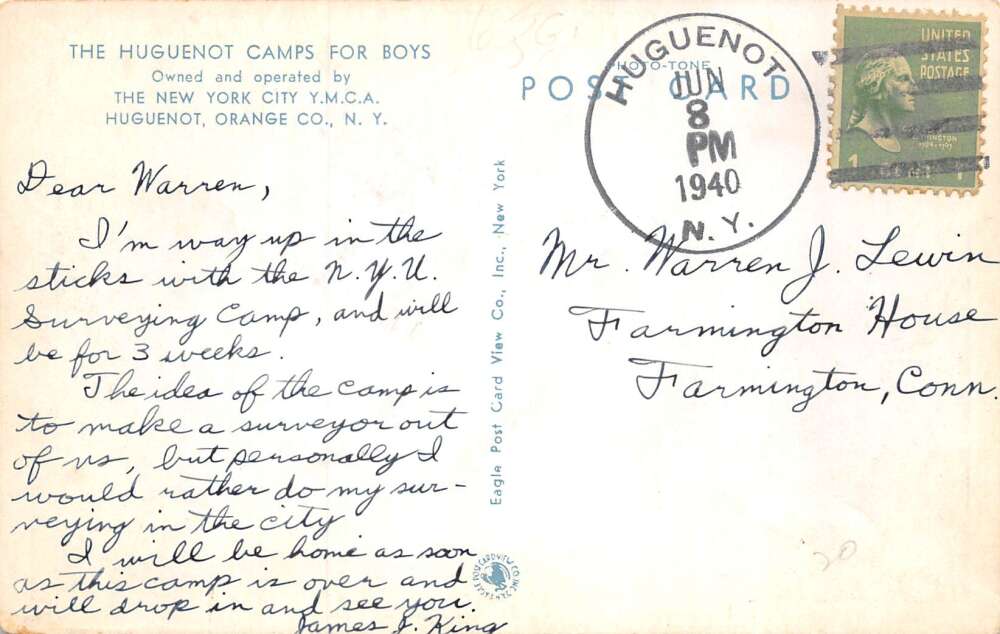 THE HUGUENOT CAMPS FOR BOYS
Owned and operated by
THE NEW YORK CITY Y.M.C.A.
HUGUENOT, ORANGE CO., N. Y.
Dear Warren,
I'm way up in the
sticks with the N.Y.U.
Surveying Camp, and will
be for 3 weeks.
The idea of the camp is
to make a surveyor out
of us, but personally I
would rather do my sur-
veying in the city
I will be home as soon
as this camp is over and
will drop in and see you.
James J. King
Eagle Post Card View Co., Inc., New York
PHOTO-TONE
POST CARD
HUGUENOT
JUN
8
PM
1940
N.Y.
UNITED
STATES
POSTAGE
1
Mr. Warren J. Lewin
Farmington House
Farmington, Conn.
20